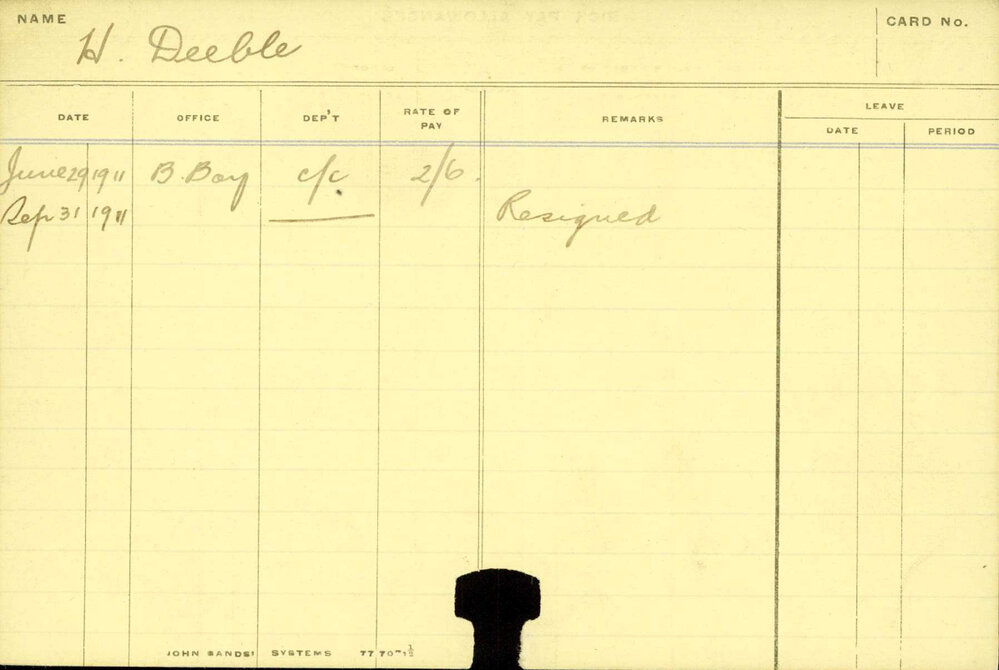 NAME H. Deeble CARD No.
DATE OFFICE DEP'T RATE OF PAY REMARKS LEAVE
DATE PERIOD
June 29 1911 B. Boy c/c 2/6.
Sep 31 1911 Resigned
JOHN SANDS' SYSTEMS